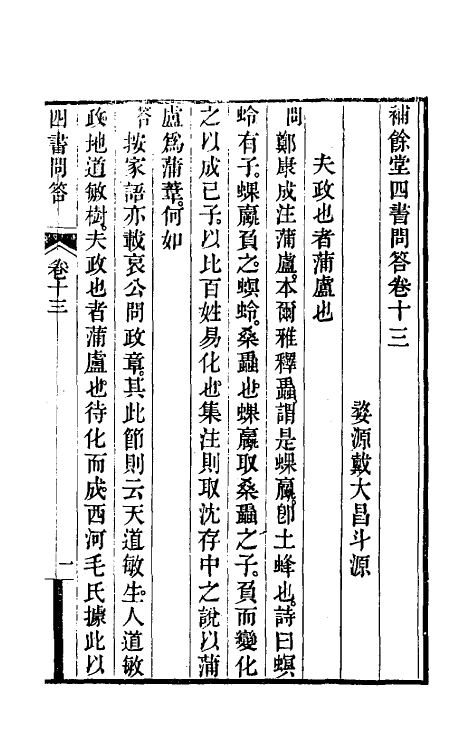 補餘堂四書問答卷十三
婺源戴大昌斗源
夫政也者蒲盧也
問鄭康成注蒲盧本爾雅釋蟲謂是蜾蠃即土蜂也詩曰螟
蛉有子蜾蠃負之螟蛉桑蟲也蜾蠃取桑蟲之子負而變化
之以成已子以比百姓易化也集注則取沈存中之說以蒲
盧爲蒲葦何如
答按家語亦載哀公問政章其此節則云天道敏生人道敏
政地道敏樹夫政也者蒲盧也待化而成西河毛氏據此以
四書問答
卷十三
一